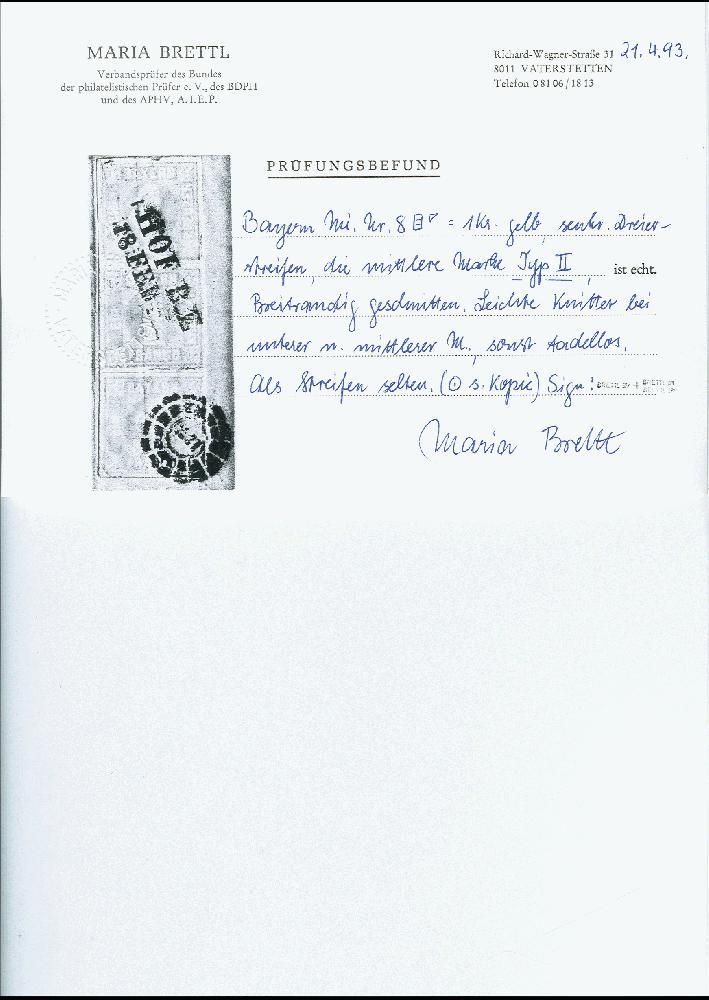 MARIA BRETTL
Verbandsprüfer des Bundes
der philatelistischen Prüfer e. V., des BDPH
und des APHV, A.I.E.P.
Richard-Wagner-Straße 31 21.4.93.
8011 VATERSTETTEN
Telefon 0 81 06 / 18 13
PRÜFUNGSBEFUND
HOF B.E
18 FEB
Bayern Mi. Nr. 8 = 1 Kr. gelb, senkr. Dreier-
streifen, die mittlere Marke Typ II, ist echt.
Breitrandig geschnitten. Leichte Knitter bei
unterer u. mittlerer M., sonst tadellos.
Als Streifen selten. (⊙ s. Kopie) Sign!
Maria Brettl